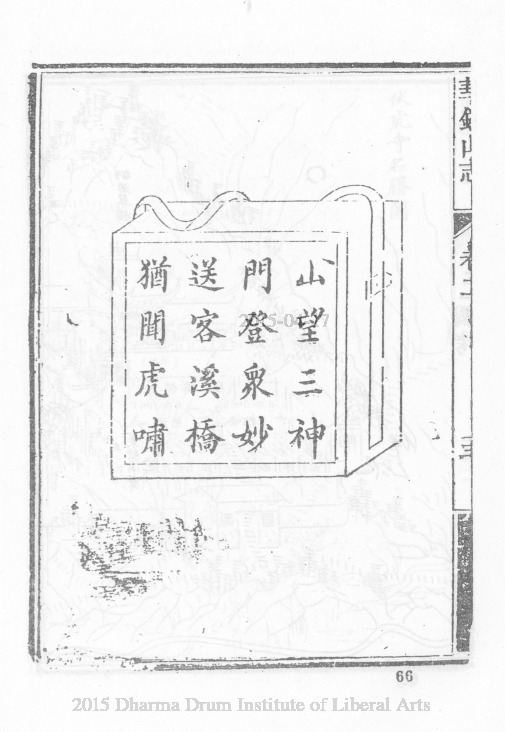 山志
卷二
山望三神
門登衆妙
送客溪橋
猶聞虎嘯
66
2015 Dharma Drum Institute of Liberal Arts